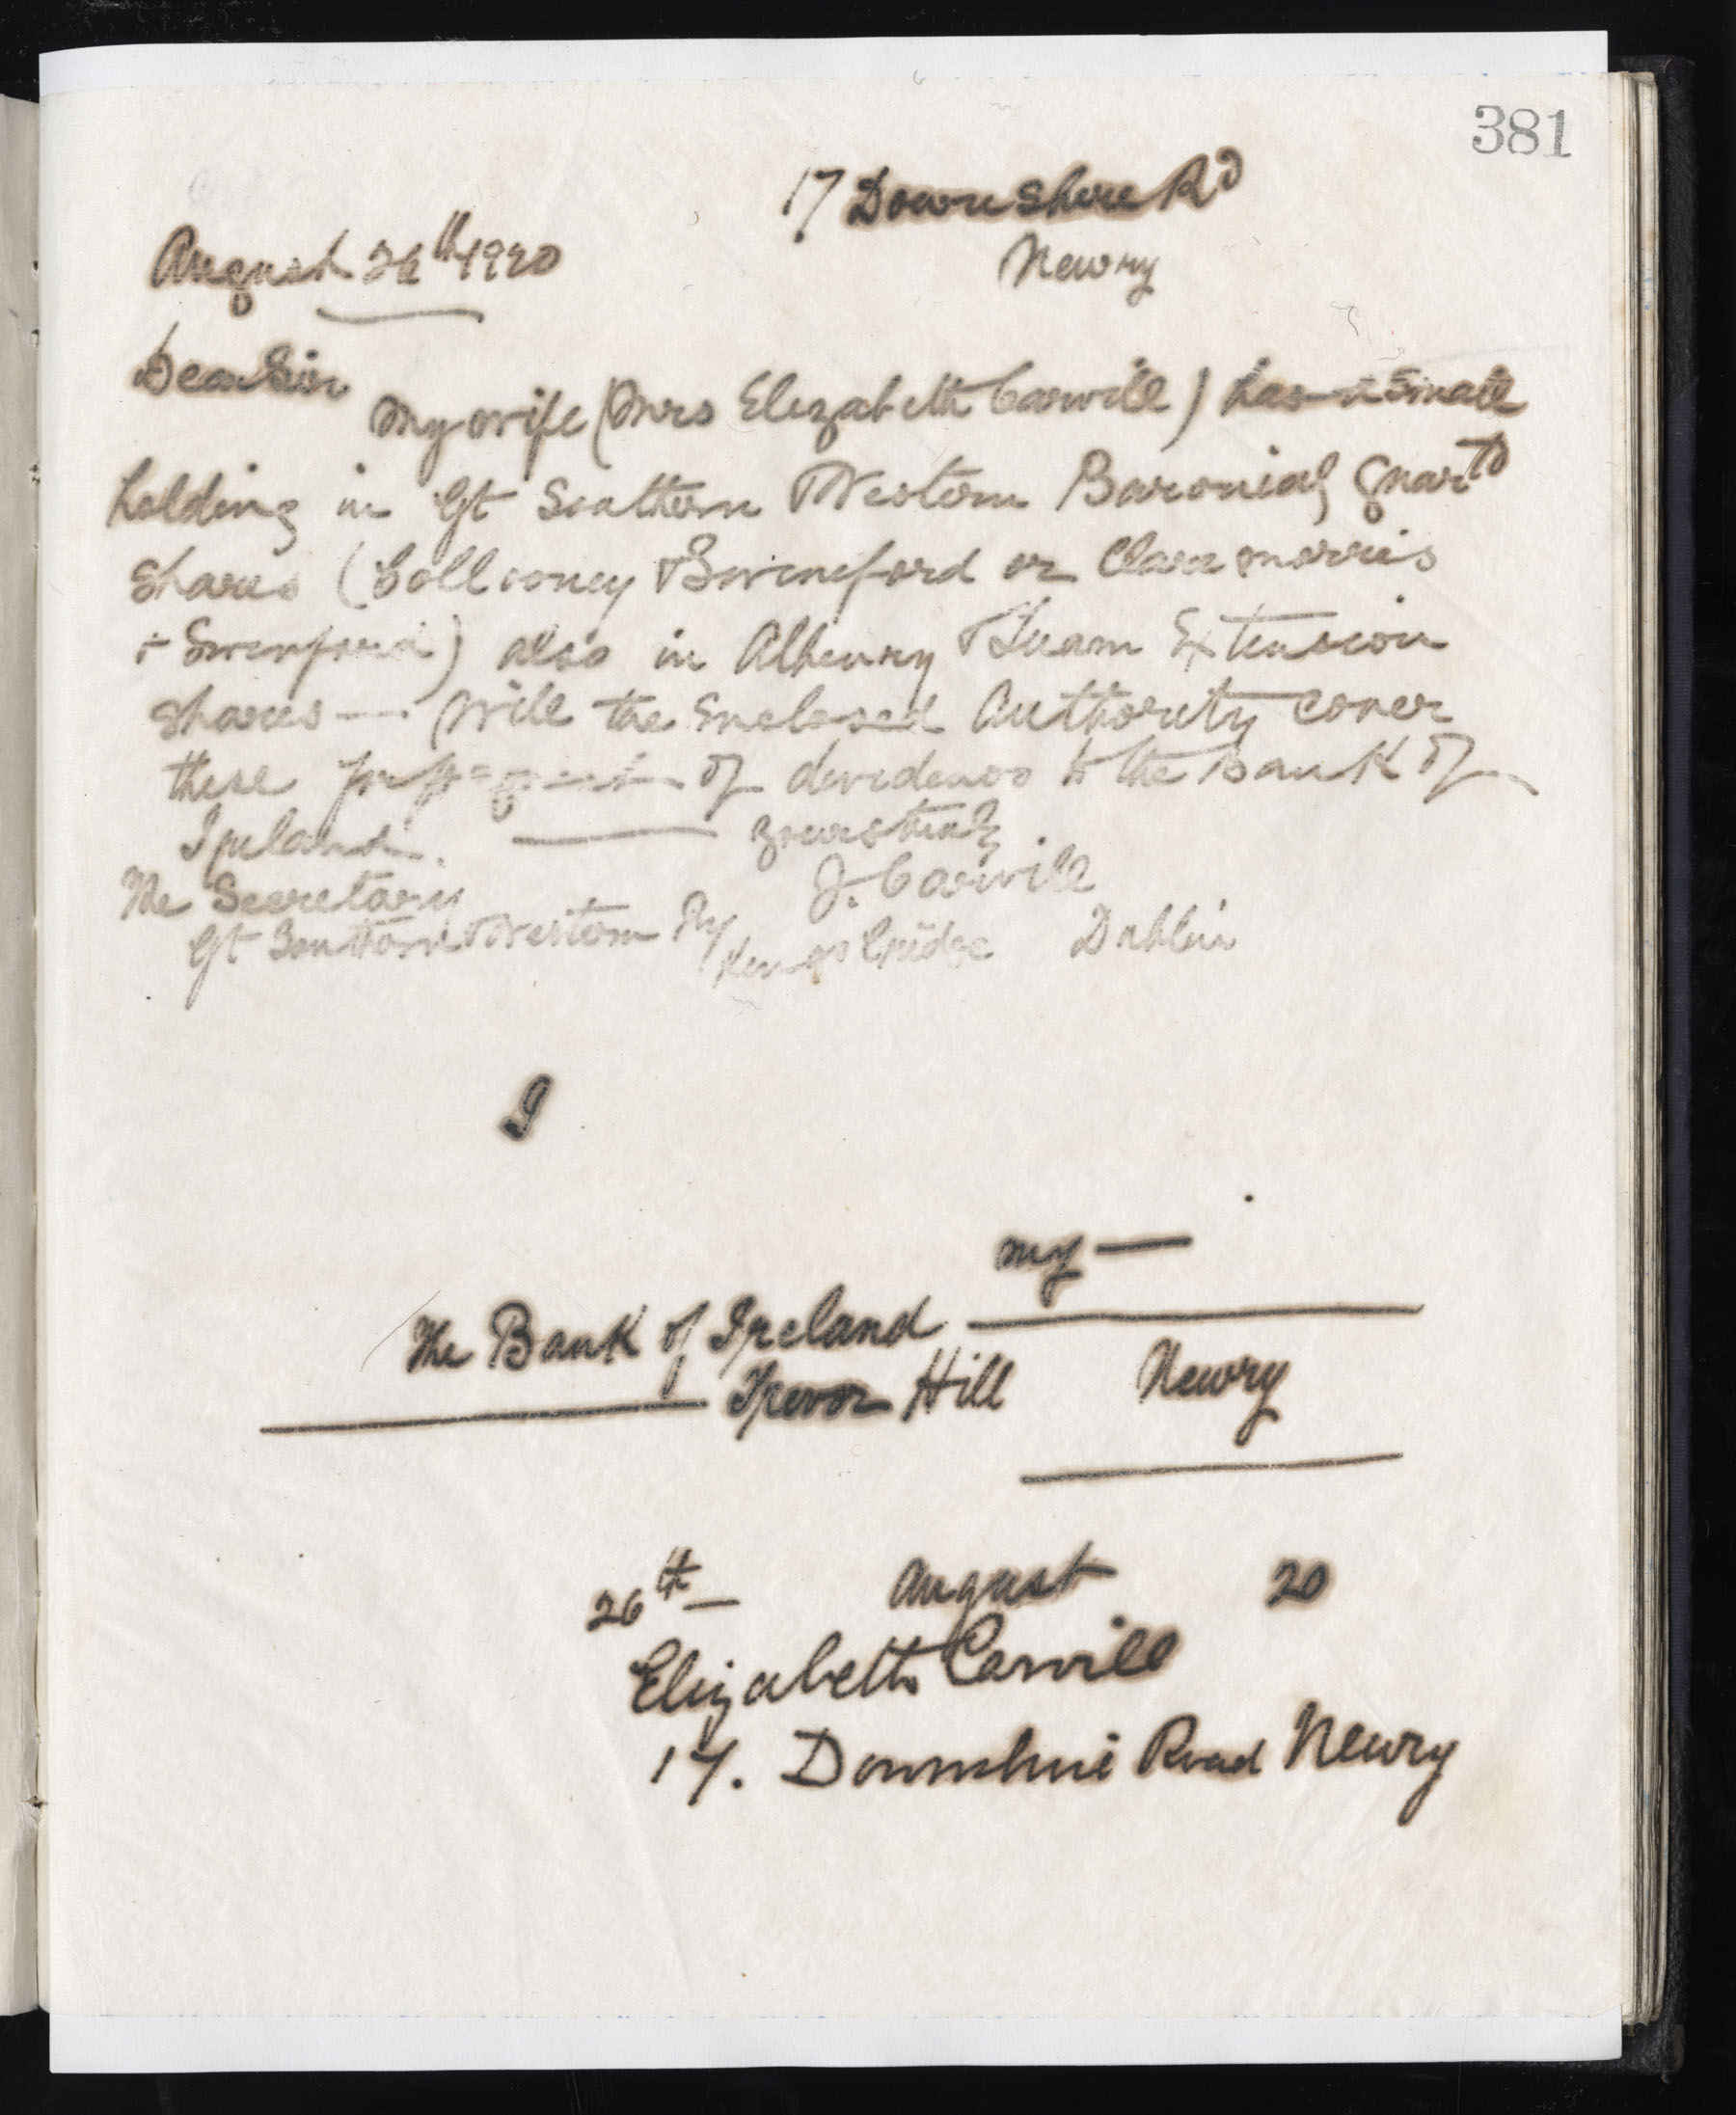 381
17 Downshire Rd
August 26th 1920
Newry
Dear Sir
My wife (Mrs Elizabeth Carvill) has a small
holding in Gt Southern & Western Baronial Guartd
shares (Collooney & Swineford or Claremorris
& Swinford) also in Athenry & Tuam Extension
shares — Will the Enclosed Authority cover
these of dividends to the Bank of
Ireland.
yours truly
J. Carvill
The Secretary
Gt Southern & Western Ry Kingsbridge Dublin
I
my —
The Bank of Ireland
Trevor Hill Newry
26th — August 20
Elizabeth Carvill
17. Downshire Road Newry